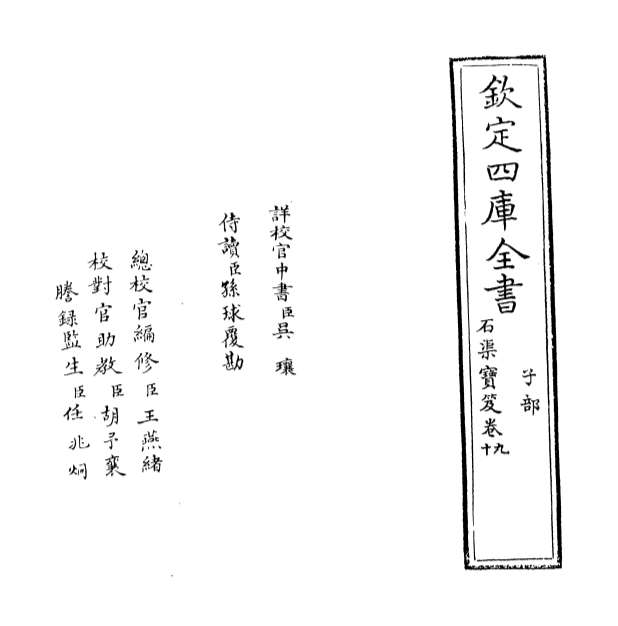 欽定四庫全書
子部
石渠寶笈卷十九
詳校官中書臣吳瓖
侍讀臣孫球覆勘
總校官編修臣王燕緒
校對官助教臣胡予襄
謄錄監生臣任兆炯